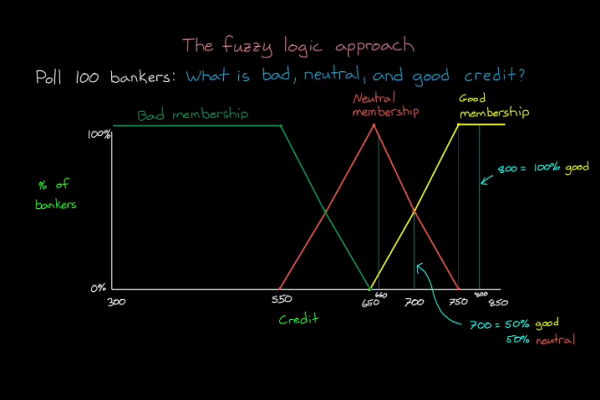 The fuzzy logic approach
Poll 100 bankers: What is bad, neutral, and good credit?
Bad membership
Neutral
membership
Good
membership
100%
800 = 100% good
% of
bankers
0%
300
550
650
660
700
750
800
850
Credit
700 = 50% good
50% neutral